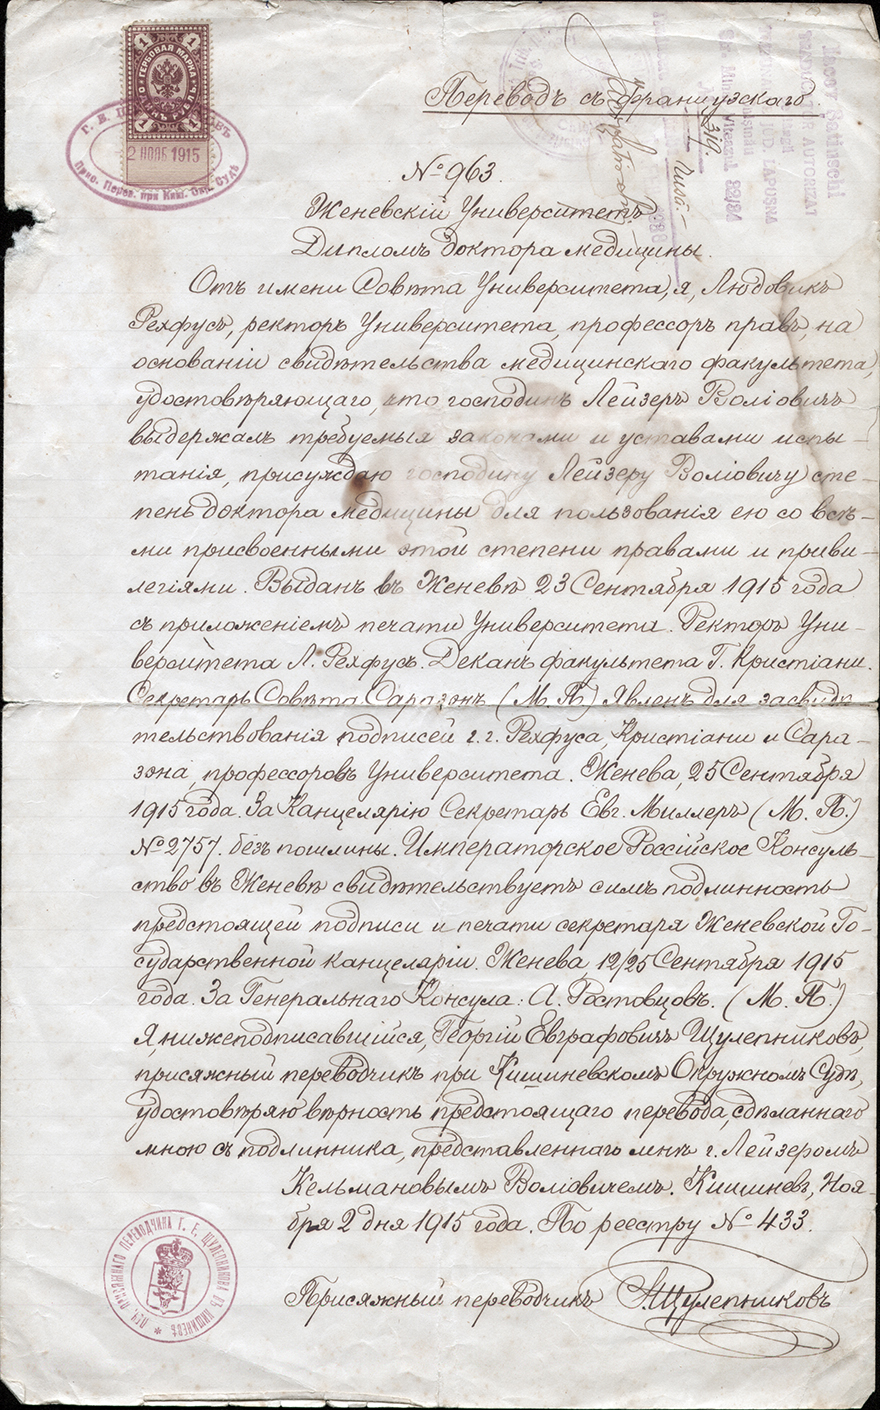 1 ГЕРБОВАЯ МАРКА 1
1 ОДИНЪ РУБЛЬ 1
2 НОЯБ 1915
Прис. Перев. при Киш. Окр. Судѣ
TRADUCĂTOR AUTORIZAT
Переводъ съ французскаго
№ 963.
Женевскій Университетъ
Дипломъ доктора медицины.
Отъ имени Совѣта Университета, я, Людовикъ
Рехфусъ, ректоръ Университета, профессоръ правъ, на
основаніи свидѣтельства медицинскаго факультета,
удостовѣряющаго, что господинъ Лейзеръ Воліовичъ
выдержалъ требуемыя законами и уставами испы-
танія, присуждаю господину Лейзеру Воліовичу сте-
пень доктора медицины для пользованія ею со всѣ-
ми присвоенными этой степени правами и приви-
легіями. Выданъ въ Женевѣ 23 Сентября 1915 года
съ приложеніемъ печати Университета. Ректоръ Уни-
верситета Л. Рехфусъ. Деканъ факультета Г. Кристіани.
Секретарь Совѣта Саразонъ (М. П.) Явленъ для засвидѣ
тельствованія подписей г. г. Рехфуса, Кристіани и Сара-
зона, профессоровъ Университета. Женева, 25 Сентября
1915 года. За Канцелярію Секретарь Евг. Миллеръ (М. П.)
№ 2757. безъ пошлины. Императорское Россійское Консуль-
ство въ Женевѣ свидѣтельствуетъ симъ подлинность
предстоящей подписи и печати секретаря Женевской Го-
сударственной канцеляріи. Женева 12/25 Сентября 1915
года. За Генеральнаго Консула: А. Ростовцовъ. (М. П.)
Я, нижеподписавшійся, Георгій Евграфовичъ Щулепниковъ,
присяжный переводчикъ при Кишиневскомъ Окружномъ Судѣ,
удостовѣряю вѣрность предстоящаго перевода, сдѣланнаго
мною съ подлинника, представленнаго мнѣ г. Лейзеромъ
Кельмановымъ Воліовичемъ. Кишиневъ, Ноя-
бря 2 дня 1915 года. По реестру № 433.
Присяжный переводчикъ Г. Щулепниковъ
ПЕЧ. ПРИСЯЖНАГО ПЕРЕВОДЧИКА Г. Е. ЩУЛЕПНИКОВА ВЪ КИШИНЕВѢ